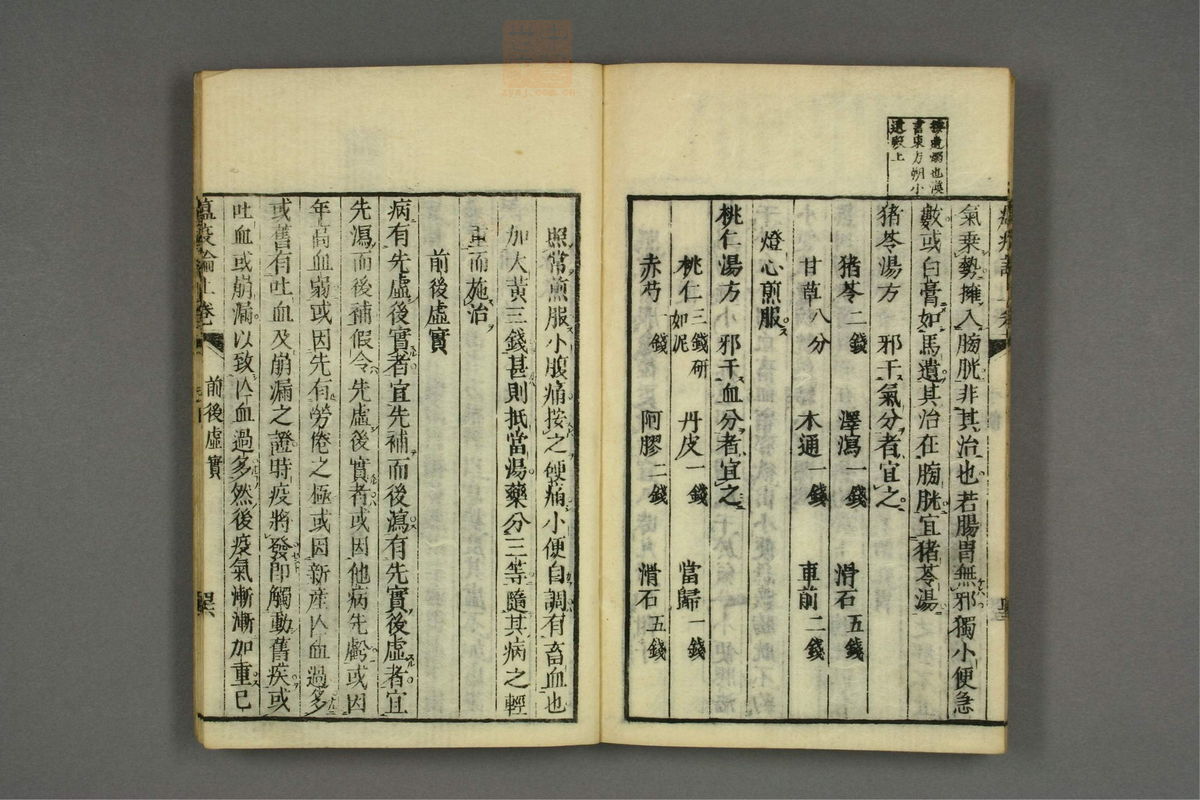 按遺溺也漢
書東方朔小
遺殿上
氣乘勢擁入膀胱非其治也若腸胃無邪獨小便急
數或白膏如馬遺其治在膀胱宜猪苓湯
猪苓湯方 邪干氣分者宜之
猪苓二錢 澤瀉一錢 滑石五錢
甘草八分 木通一錢 車前二錢
燈心煎服
桃仁湯方 小邪干血分者宜之
桃仁三錢研如泥 丹皮一錢 當歸一錢
赤芍一錢 阿膠二錢 滑石五錢
照常煎服小腹痛按之硬痛小便自調有畜血也
加大黃三錢甚則抵當湯藥分三等隨其病之輕
重而施治
前後虛實
病有先虛後實者宜先補而後瀉有先實後虛者宜
先瀉而後補假令先虛後實者或因他病先虧或因
年高血弱或因先有勞倦之極或因新産亡血過多
或舊有吐血及崩漏之證時疫將發即觸動舊疾或
吐血或崩漏以致亡血過多然後疫氣漸漸加重已
瘟疫論上卷 前後虛實